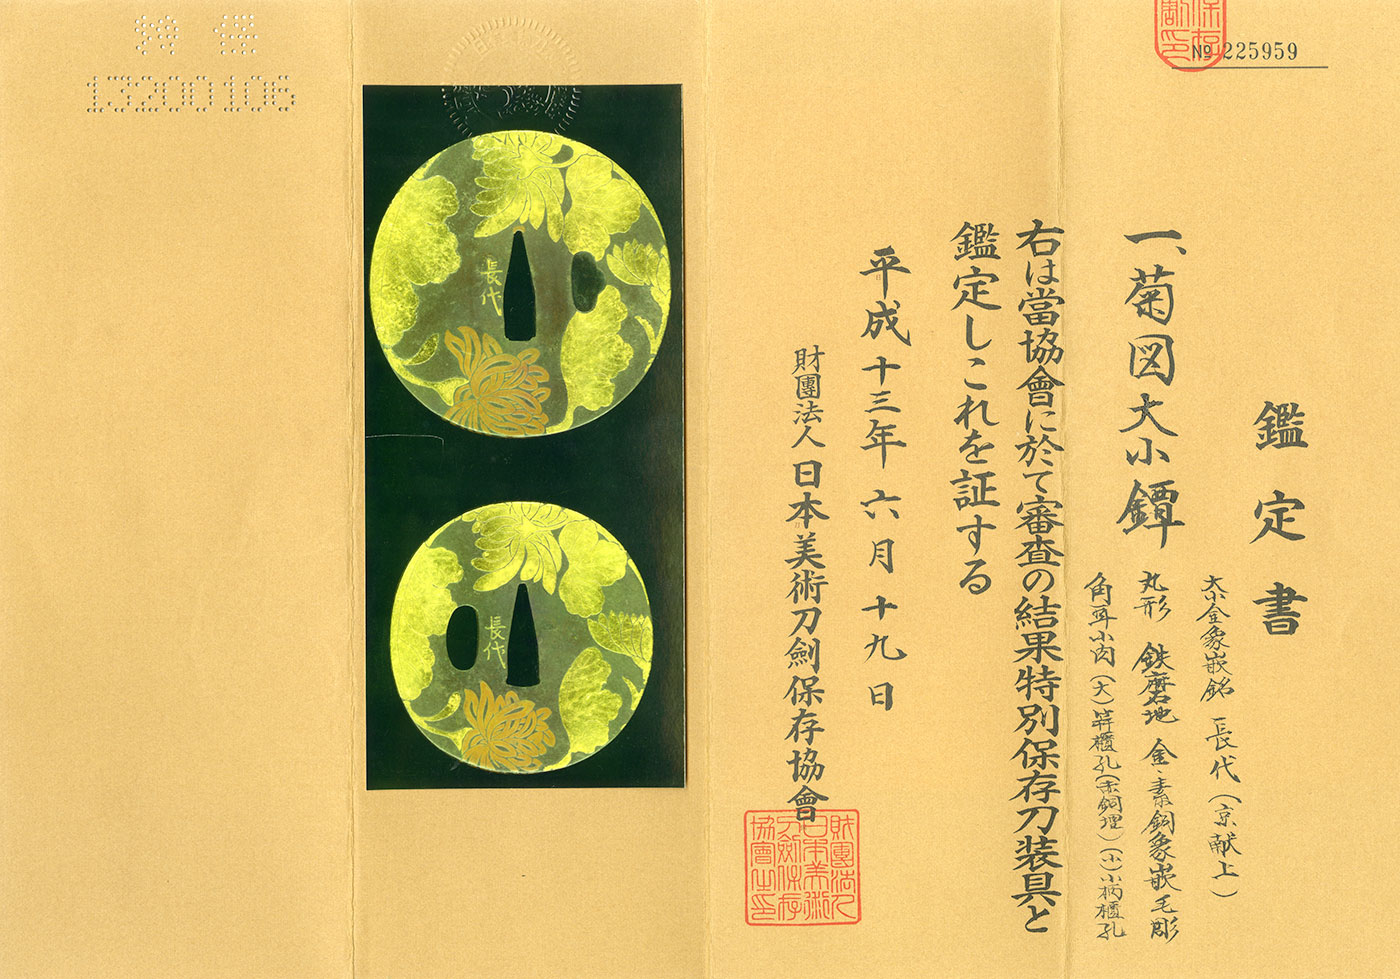 № 225959
鑑定書
一、菊図大小鐔
大小金象嵌銘 長代(京献上)
丸形 鉄磨地 金、素銅象嵌毛彫
角耳小肉(大)笄櫃孔(赤銅埋)(小)小柄櫃孔
右は當協會に於て審査の結果特別保存刀装具と
鑑定しこれを証する
平成十三年六月十九日
財團法人日本美術刀劍保存協會
財團法人
日本美術
刀劍保存
協會之印
長代
長代
特 保
13200106